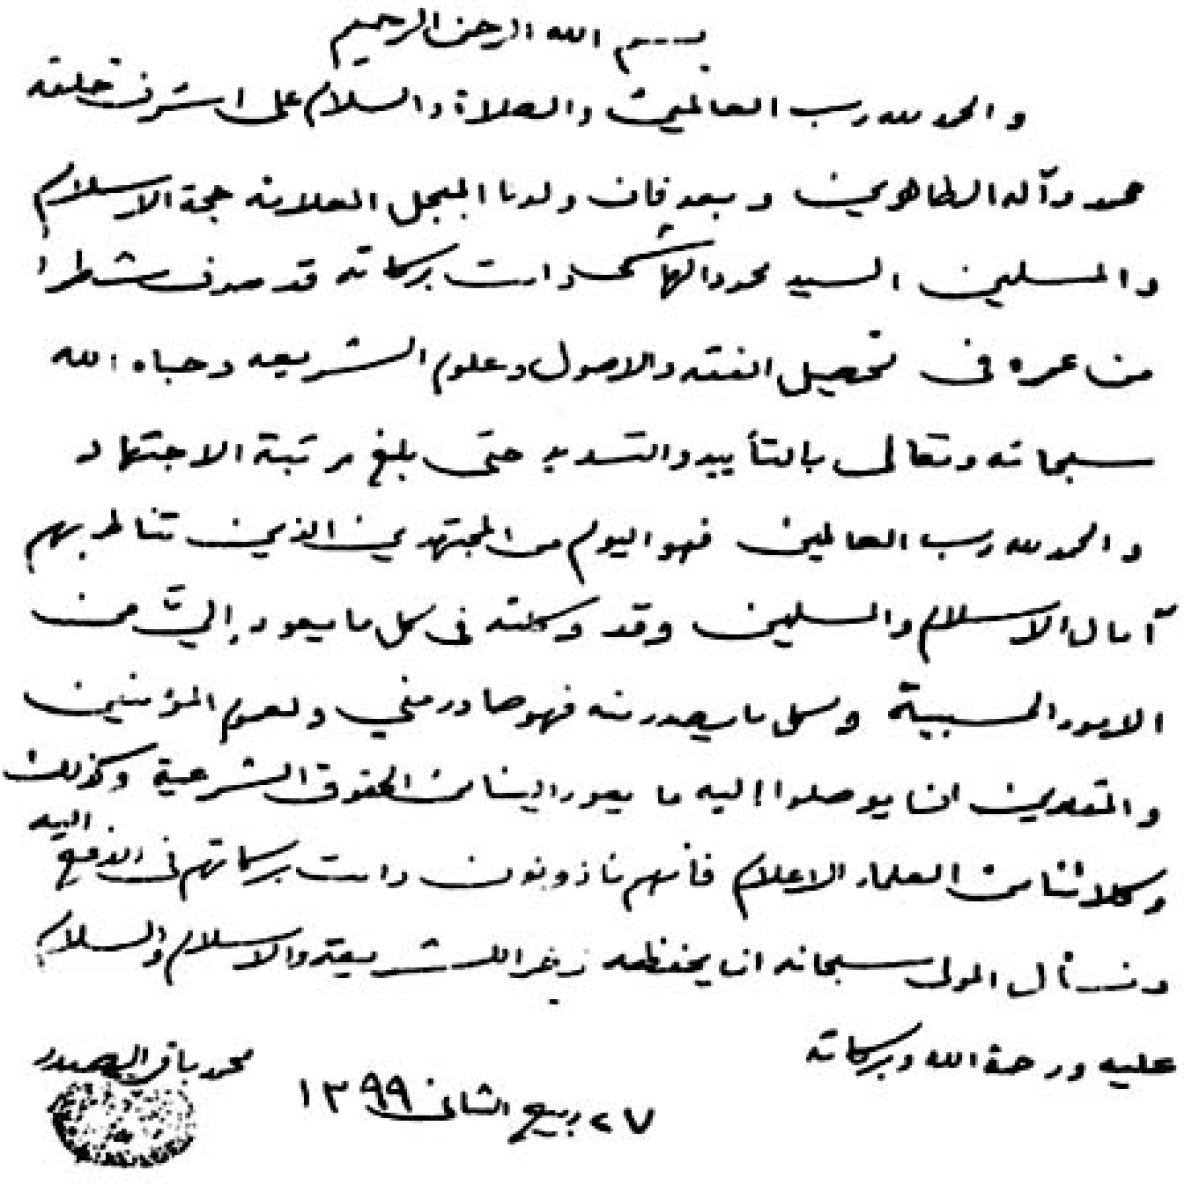 بسم الله الرحمن الرحيم
والحمد لله رب العالمين والصلاة والسلام على اشرف خلقه
محمد وآله الطاهرين وبعد فان ولدنا المبجل العلامة حجة الاسلام
والمسلمين السيد محمود الهاشمي دامت بركاته قد صرف شطرا
من عمره في تحصيل الفقه والاصول وعلوم الشريعة وحباه الله
سبحانه وتعالى بالتأييد والتسديد حتى بلغ مرتبة الاجتهاد
والحمد لله رب العالمين فهو اليوم من المجتهدين الذين تناط بهم
آمال الاسلام والمسلمين وقد وكلته في كل ما يعود إليّ من
الامور الحسبية وكل ما يصدر منه فهو صادر مني ولعموم المؤمنين
والمقلدين ان يوصلوا إليه ما يعود الينا من الحقوق الشرعية وكذلك
وكلائنا من العلماء الاعلام فأنهم مأذونون دامت بركاتهم في الدفع اليه
ونسأل المولى سبحانه ان يحفظه ذخرا للشريعة والاسلام والسلام
عليه ورحمة الله وبركاته
٢٧ ربيع الثاني ١٣٩٩
محمد باقر الصدر